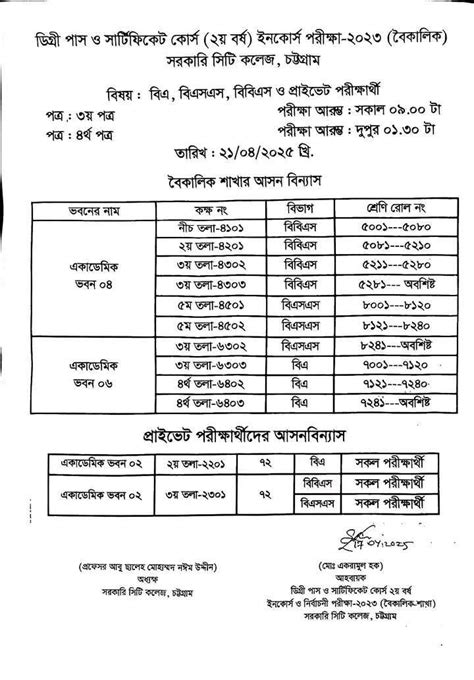 ডিগ্রী পাস ও সার্টিফিকেট কোর্স (২য় বর্ষ) ইনকোর্স পরীক্ষা-২০২৩ (বৈকালিক)
সরকারি সিটি কলেজ, চট্টগ্রাম
বিষয় : বিএ, বিএসএস, বিবিএস ও প্রাইভেট পরীক্ষার্থী
পত্র : ৩য় পত্র পরীক্ষা আরম্ভ : সকাল ০৯.০০ টা
পত্র : ৪র্থ পত্র পরীক্ষা আরম্ভ : দুপুর ০১.৩০ টা
তারিখ : ২১/০৪/২০২৫ খ্রি.
বৈকালিক শাখার আসন বিন্যাস
ভবনের নাম কক্ষ নং বিভাগ শ্রেণি রোল নং
একাডেমিক ভবন ০৪ নীচ তলা-৪১০১ বিবিএস ৫০০১---৫০৮০
২য় তলা-৪২০১ বিবিএস ৫০৮১---৫২১০
৩য় তলা-৪৩০২ বিবিএস ৫২১১---৫২৮০
৩য় তলা-৪৩০৩ বিবিএস ৫২৮১--- অবশিষ্ট
৫ম তলা-৪৫০১ বিএসএস ৮০০১---৮১২০
৫ম তলা-৪৫০২ বিএসএস ৮১২১---৮২৪০
একাডেমিক ভবন ০৬ ৩য় তলা-৬৩০২ বিএসএস ৮২৪১---অবশিষ্ট
৩য় তলা-৬৩০৩ বিএ ৭০০১---৭১২০
৪র্থ তলা-৬৪০২ বিএ ৭১২১---৭২৪০
৪র্থ তলা-৬৪০৩ বিএ ৭২৪১---অবশিষ্ট
প্রাইভেট পরীক্ষার্থীদের আসনবিন্যাস
একাডেমিক ভবন ০২ ২য় তলা-২২০১ ৭২ বিএ সকল পরীক্ষার্থী
একাডেমিক ভবন ০২ ৩য় তলা-২৩০১ ৭২ বিবিএস সকল পরীক্ষার্থী
বিএসএস সকল পরীক্ষার্থী
(প্রফেসর আবু ছালেহ মোহাম্মদ নঈম উদ্দীন)
অধ্যক্ষ
সরকারি সিটি কলেজ, চট্টগ্রাম
(মোঃ একরামুল হক)
আহবায়ক
ডিগ্রী পাস ও সার্টিফিকেট কোর্স ২য় বর্ষ
ইনকোর্স ও নির্বাচনী পরীক্ষা-২০২৩ (বৈকালিক-শাখা)
সরকারি সিটি কলেজ, চট্টগ্রাম